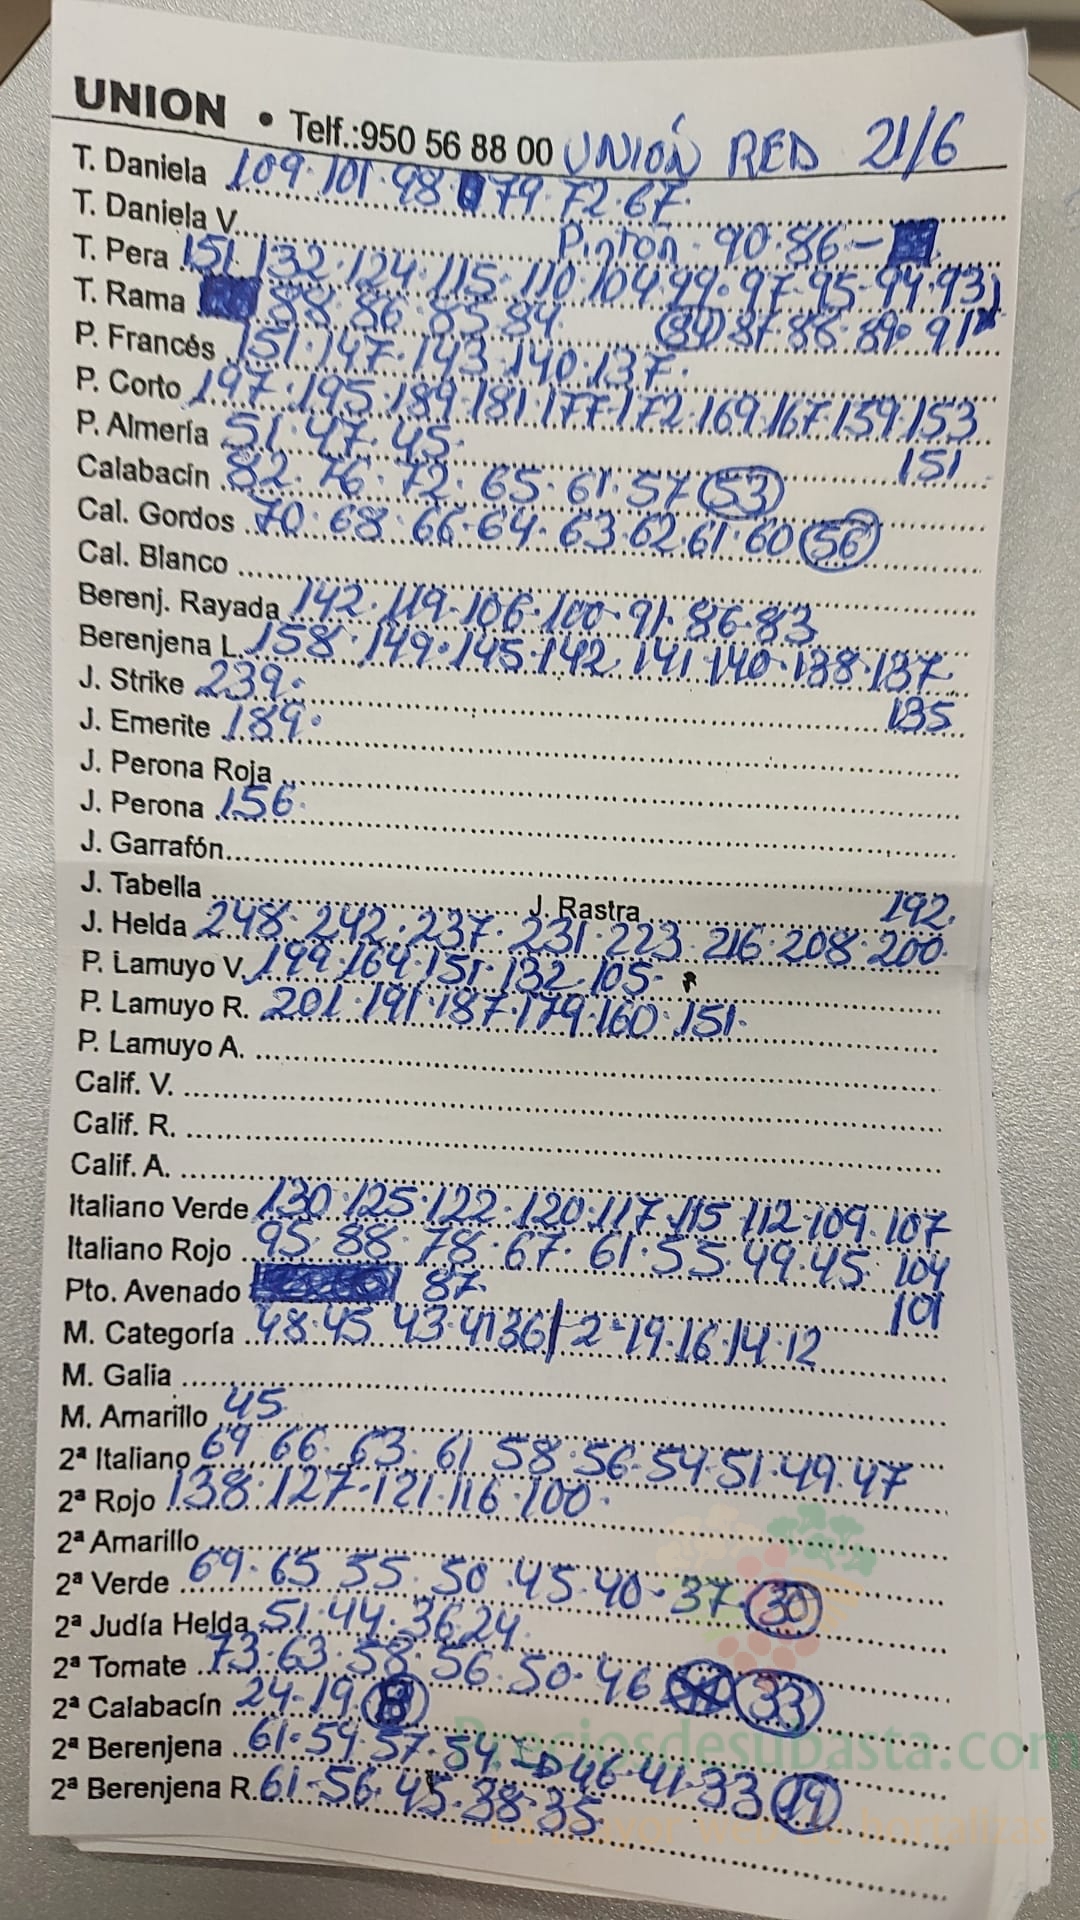 UNION • Telf.:950 56 88 00 UNIÓN RED 21/6
T. Daniela 109·101·98 79·72·67·
T. Daniela V. Pintón·90·86-
T. Pera 151·132·124·115·110·104·99·97·95·94·93
T. Rama 88·86·85·84· (84) 87·88·89·91
P. Francés 151·147·143·140·137·
P. Corto 197·195·189·181·177·172·169·167·159·153
151
P. Almería 51·47·45·
Calabacín 82·76·72·65·61·57 (53)
Cal. Gordos 70·68·66·64·63·62·61·60 (56)
Cal. Blanco
Berenj. Rayada 142·119·106·100·91·86·83
Berenjena L. 158·149·145·142·141·140·138·137
135
J. Strike 239·
J. Emerite 189·
J. Perona Roja
J. Perona 156·
J. Garrafón
J. Tabella J. Rastra 192·
J. Helda 248·242·237·231·223·216·208·200·
P. Lamuyo V. 199·164·151·132·105·
P. Lamuyo R. 201·191·187·179·160·151·
P. Lamuyo A.
Calif. V.
Calif. R.
Calif. A.
Italiano Verde 130·125·122·120·117·115·112·109·107
104
101
Italiano Rojo 95·88·78·67·61·55·49·45
Pto. Avenado 87·
M. Categoría 48·45·43·41·36/2ª·19·16·14·12
M. Galia
M. Amarillo 45
2ª Italiano 69·66·63·61·58·56·54·51·49·47
2ª Rojo 138·127·121·116·100·
2ª Amarillo
2ª Verde 69·65·55·50·45·40·37·(30)
2ª Judía Helda 51·44·36·24·
2ª Tomate 73·63·58·56·50·46 (33)
2ª Calabacín 24·19
2ª Berenjena 61·59·57·54·46·41·33 (19)
2ª Berenjena R. 61·56·45·38·35
Preciosdesubasta.com
La mayor web de hortalizas